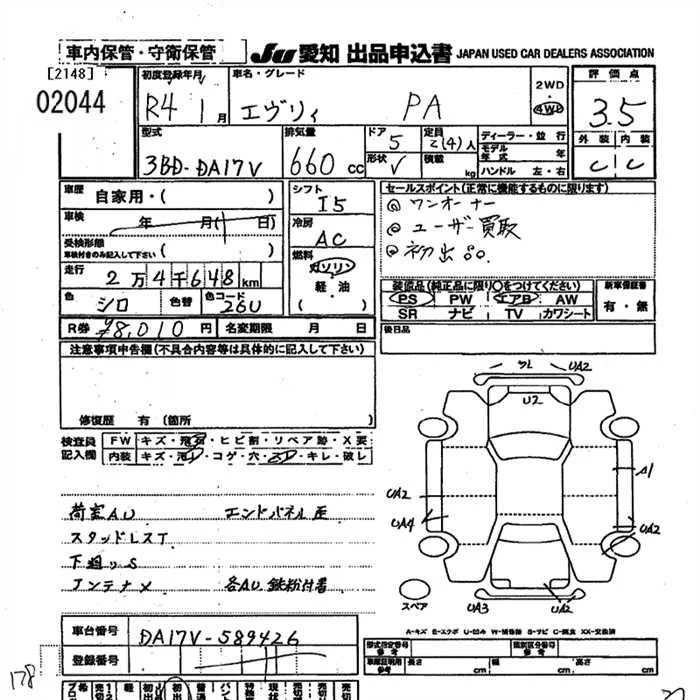 車内保管・守衛保管
JU 愛知 出品申込書 JAPAN USED CAR DEALERS ASSOCIATION
[2148]
02044
初度登録年月
R4 1月
車名・グレード
エヴリィ PA
2WD
4WD
評価点
3.5
外装 内装
C C
型式
3BD-DA17V
排気量
660cc
ドア
5
形状
V
定員
2(4)人
積載
kg
ディーラー・並行
モデル年式 年
ハンドル 左・右
車歴
自家用・( )
車検
年 月( 日)
受検形態
車検付きのみ記入して下さい
( )
走行
2万4千648km
色
シロ
色替
色コード
26U
R券 ¥8,010円
名変期限 月 日
シフト
I5
冷房
AC
燃料
ガソリン
軽・油
( )
セールスポイント(正常に機能するものに限ります)
◎ワンオーナー
◎ユーザー買取
◎初出品.
装備品(純正品に限り○をつけてください)
PS PW エアB AW
SR ナビ TV カワシート
新車保証書
有・無
後日品
注意事項申告欄(不具合内容等は具体的に記入して下さい)
修復歴 有(箇所 )
検査員記入欄
FW キズ・飛石・ヒビ割・リペア跡・X要
内装 キズ・汚レ・コゲ・穴・スレ・キレ・破レ
荷室AU エンドパネル圧
スタッドレスT
下廻りS
アンテナメ 各AU 鉄粉付着
UA2
U2
A1
UA2
UA4
UA2
UA3
UA2
スペア
A-キズ E-エクボ U-凹み W-補修跡 S-サビ C-腐食 XX-交換済
車台番号
DA17V-589426
登録番号
型式指定番号
類別区分番号
車庫証明用参考
長さ cm
幅 cm
高さ cm
178